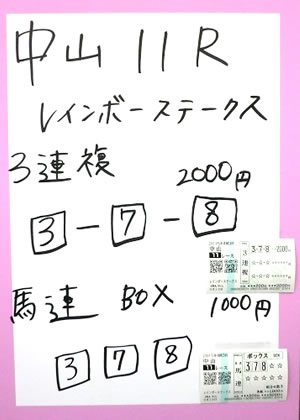 中山 11R
レインボーステークス
3連複
2000円
3-7-8
中山
11レース
3連複
3-7-8
馬連 BOX
1000円
3 7 8
中山
11レース
馬連
ボックス
3 7 8 ☆ ☆
☆ ☆ ☆ ☆ ☆